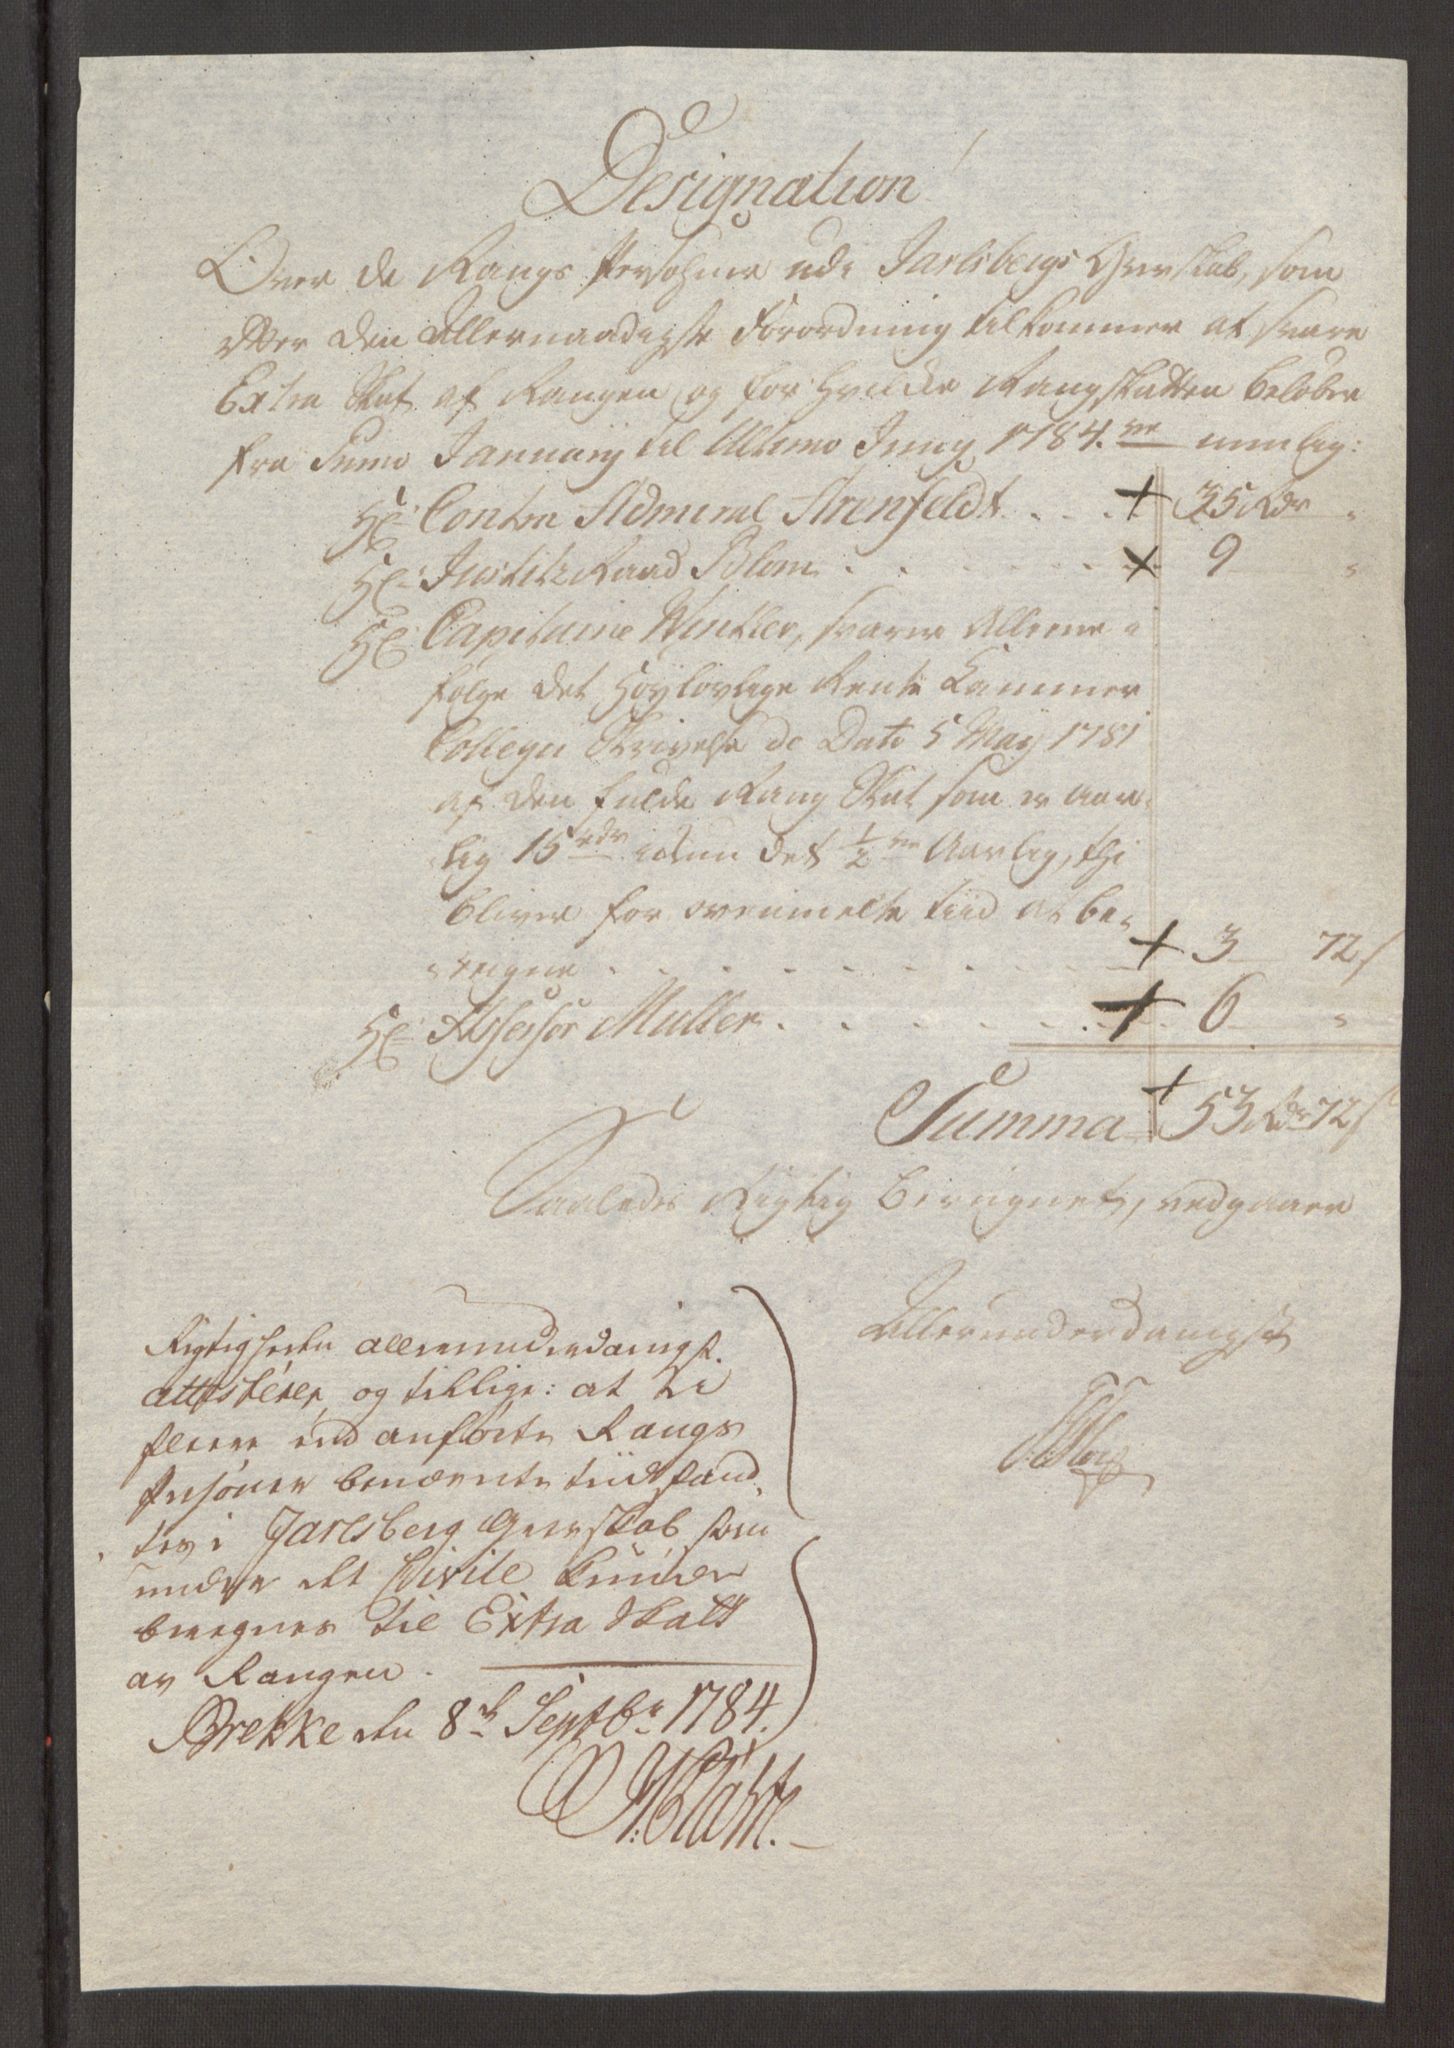 Designation
Over de Rangs Persohner udi Jarlsbergs Grevskab, som
efter den Allernaadigste Forordning tilkommer at svare
Extra Skat af Rangen og for hvilke Rangskatten beløber
fra Primo Januarij til Ultimo Junij 1784. nemlig:
Hr: Contra Admiral Arenfeldt . . . + 35 Rdr "
Hr: Justitz Raad Blom . . . . . . + 9 "
Hr: Capitaine Winkler, svarer Allene i
følge det Høylovlige Rente Kammer
Collegii Skrivelse de Dato 5 Maij 1781
af den fulde Rang Skat som er aar-
lig 15 rdr ikkun det 1/2 Aarlig, thi
bliver for ovenmelte tiid at be-
reigne . . . . . . . . . + 3 72 s
Hr: Assessor Muller . . . . . . + 6 "
Summa + 53 Rdr 72 s
Saaledes Rigtig beregnet, vedgaaer
Allerunderdanigst
Rigtigheden allerunderdanigst
attesterer, og tillige: at ei
fleere end anførte Rangs
Personer benævnte tiid fand-
tes i Jarlsberg Grevskab som
under det Civile kunde
beregnes til Extra Skatt
av Rangen.
Brekke den 8de Septbr 1784.